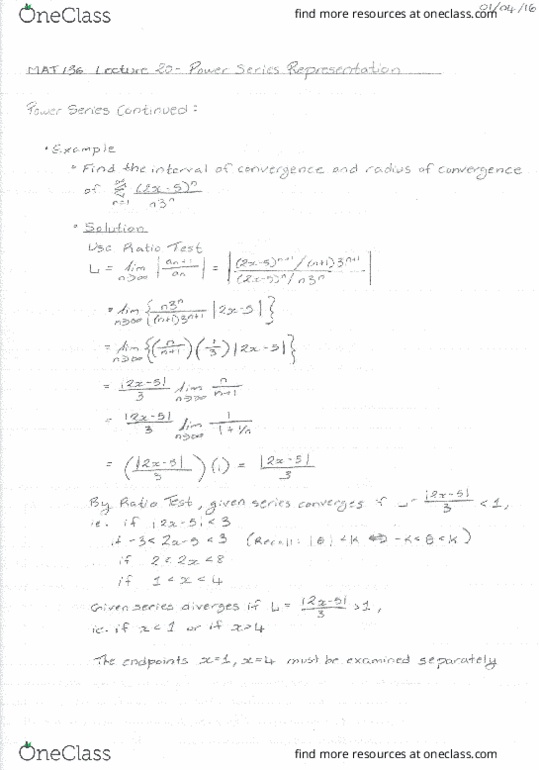 OneClass
find more resources at oneclass.com
01/04/16
MAT 136 Lecture 20 - Power Series Representation
Power Series Continued:
• Example
• Find the interval of convergence and radius of convergence
of ∞ Σ n=1 (2x-5)^n / n3^n
• Solution
Use Ratio Test
L = lim n→∞ |an+1 / an| = |(2x-5)^n+1 / (n+1)3^n+1 / (2x-5)^n / n3^n|
= lim n→∞ {n3^n / (n+1)3^n+1 |2x-5|}
= lim n→∞ {(n/n+1)(1/3)|2x-5|}
= |2x-5|/3 lim n→∞ n/n+1
= |2x-5|/3 lim n→∞ 1/1+1/n
= (|2x-5|/3)(1) = |2x-5|/3
By Ratio Test, given series converges if L = |2x-5|/3 < 1,
ie. if |2x-5| < 3
if -3 < 2x-5 < 3 (Recall: |θ| < K ⇔ -K < θ < K)
if 2 < 2x < 8
if 1 < x < 4
Given series diverges if L = |2x-5|/3 > 1,
ie. if x < 1 or if x > 4
The endpoints x=1, x=4 must be examined separately
OneClass
find more resources at oneclass.com